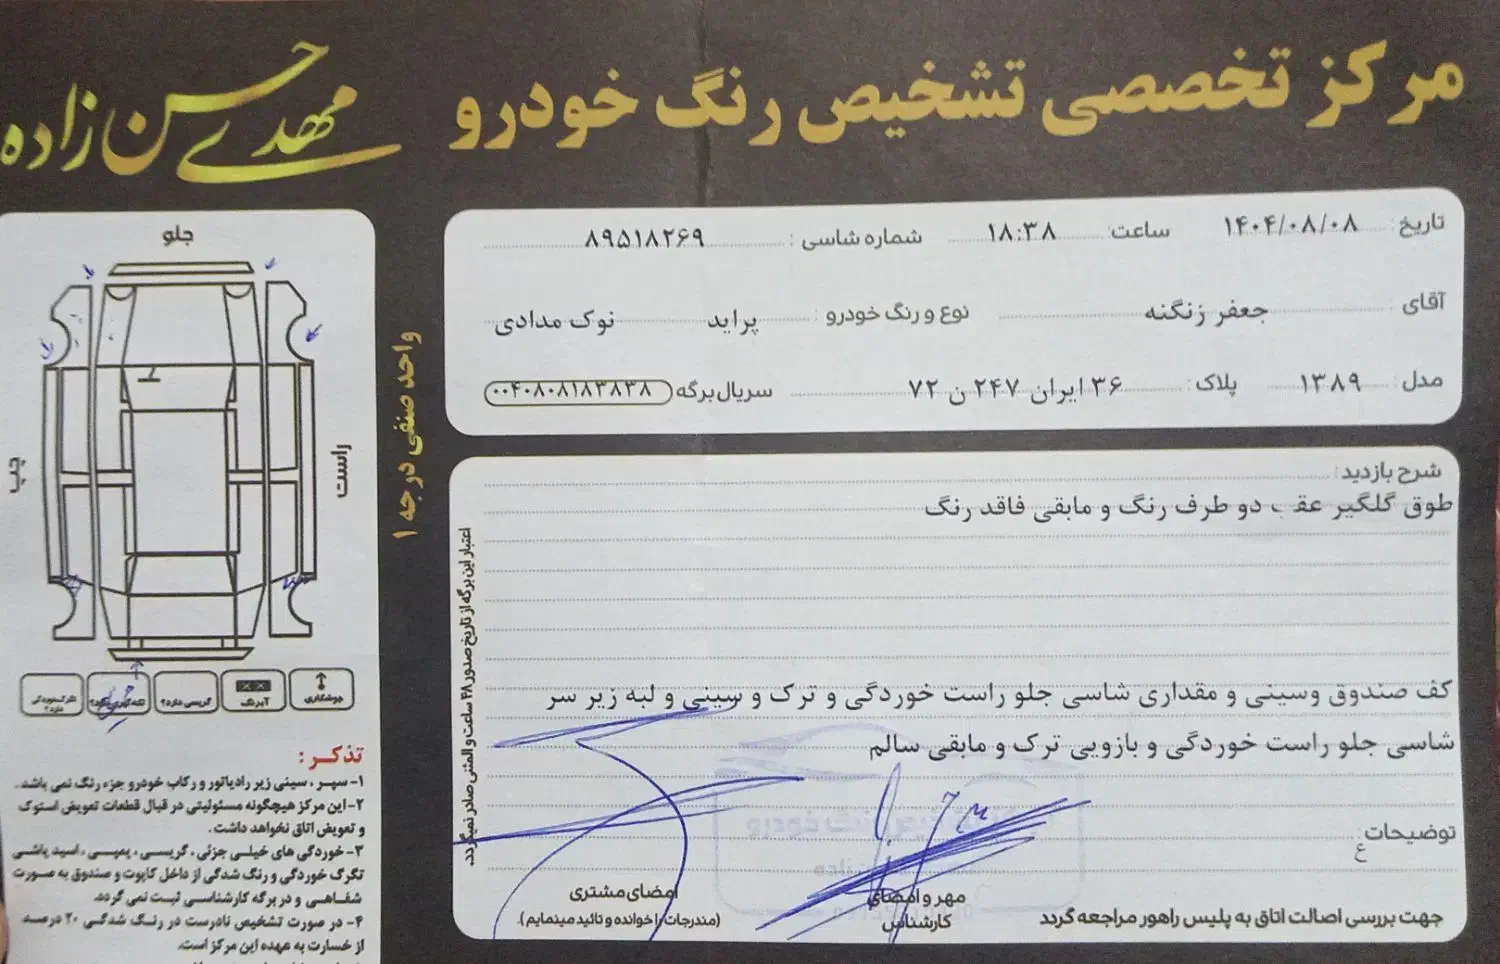 مرکز تخصصی تشخیص رنگ خودرو
مهدی حسن زاده
تاریخ: ۱۴۰۴/۰۸/۰۸ ساعت: ۱۸:۳۸ شماره شاسی: ۸۹۵۱۸۲۶۹
آقای جعفر زنگنه نوع و رنگ خودرو: پراید نوک مدادی
مدل: ۱۳۸۹ پلاک: ۳۶ ایران ۲۴۷ ن ۷۲ سریال برگه ۰۰۴۰۸۰۸۱۸۳۸۳۸
شرح بازدید:
طوق گلگیر عقب دو طرف رنگ و مابقی فاقد رنگ
کف صندوق وسینی و مقداری شاسی جلو راست خوردگی و ترک و سینی و لبه زیر سر
شاسی جلو راست خوردگی و بازویی ترک و مابقی سالم
توضیحات:
ع
مهر و امضای
کارشناس
امضای مشتری
(مندرجات را خوانده و تائید مینمایم).
جهت بررسی اصالت اتاق به پلیس راهور مراجعه گردد
اعتبار این برگه از تاریخ صدور ۴۸ ساعت و المثنی صادر نمیگردد.
واحد صنفی درجه ۱
جلو
راست
چپ
جوشکاری
آبرنگ
گریسی دارد؟
تذکر:
۱- سپر، سینی زیر رادیاتور و رکاب خودرو جزء رنگ نمی باشد.
۲- این مرکز هیچگونه مسئولیتی در قبال قطعات تعویض استوک
و تعویض اتاق نخواهد داشت.
۳- خوردگی های خیلی جزئی، گریسی، پمپی، اسید پاشی
تگرگ خوردگی و رنگ شدگی از داخل کاپوت و صندوق به صورت
شفاهی و در برگه کارشناسی ثبت نمی گردد.
۴- در صورت تشخیص نادرست در رنگ شدگی ۲۰ درصد
از خسارت به عهده این مرکز است.